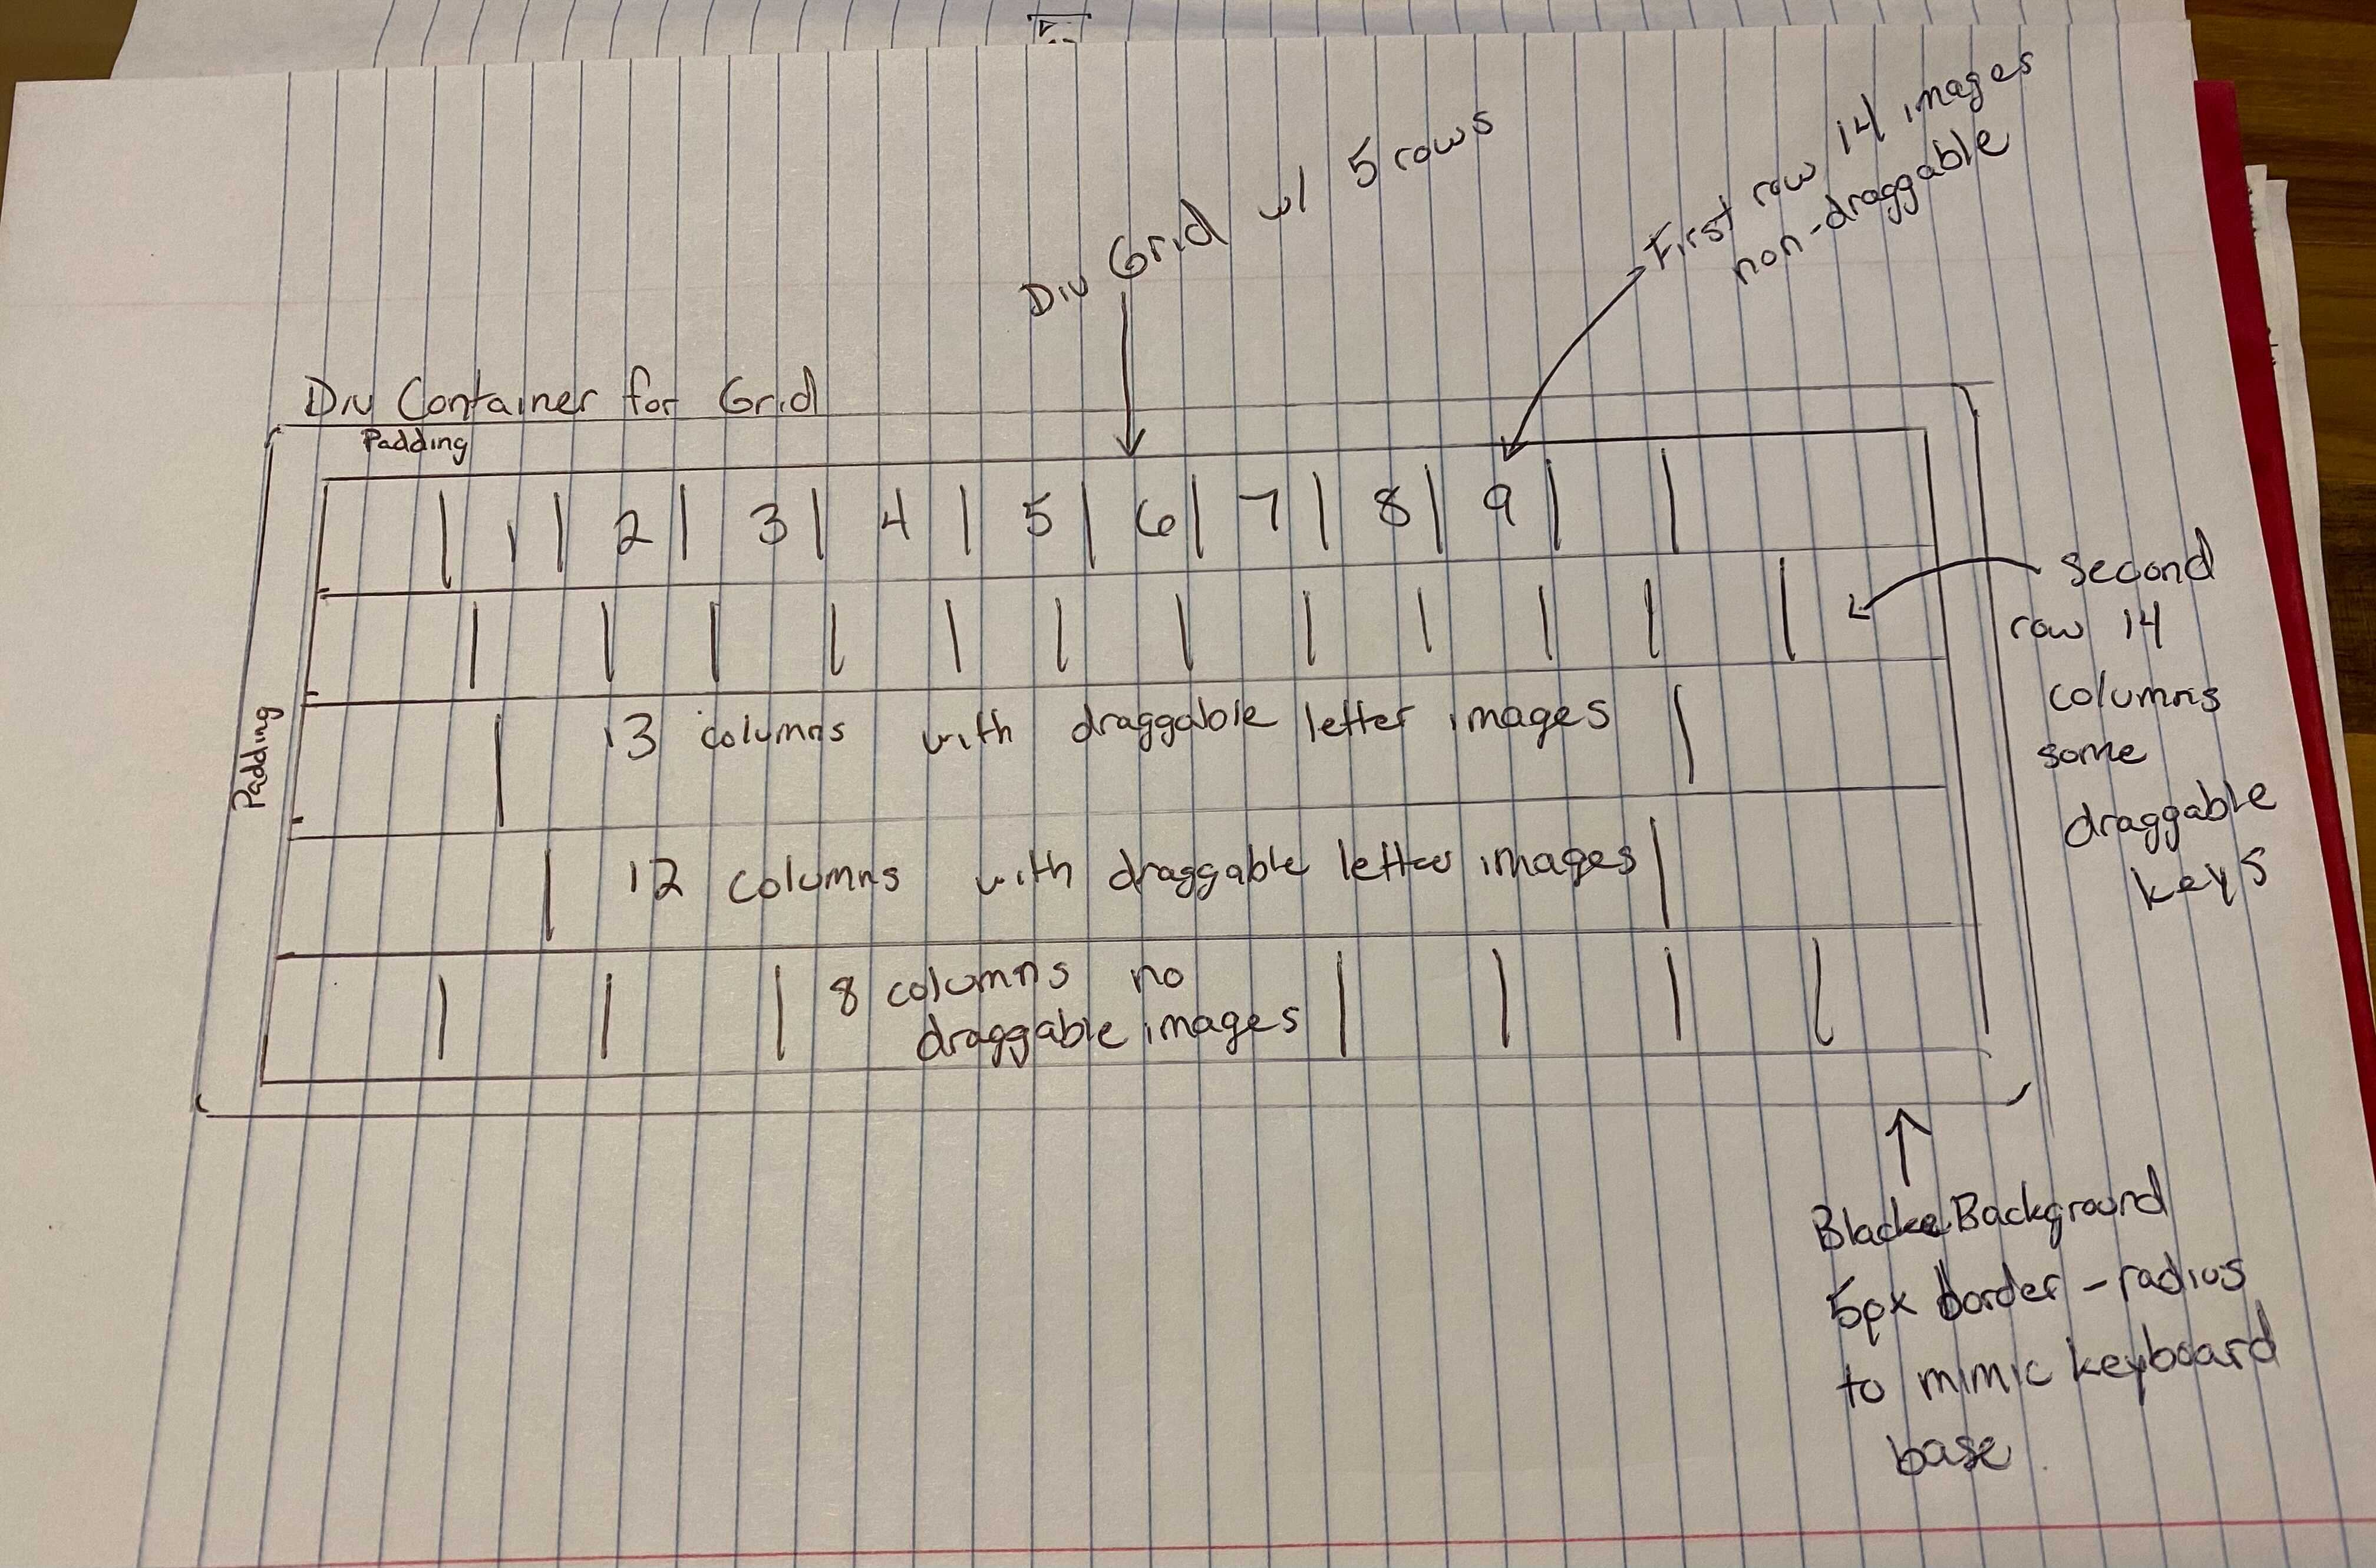 Div Grid w/ 5 rows
First row 14 images
non-draggable
Div Container for Grid
Padding
Padding
1 2 3 4 5 6 7 8 9
second
row 14
columns
some
draggable
keys
13 columns with draggable letter images
12 columns with draggable letter images
8 columns no
draggable images
Black Background
5px border-radius
to mimic keyboard
base